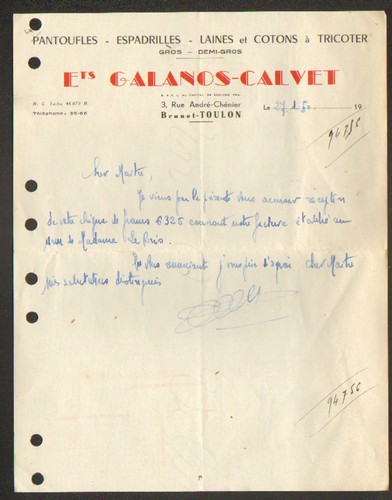 PANTOUFLES - ESPADRILLES - LAINES et COTONS à TRICOTER
GROS - DEMI-GROS
ETS GALANOS-CALVET
3, Rue André-Chénier
Brunet-TOULON
R. C. Toulon
Téléphone: 35-66
Le 27.1.50 19
94756
Cher Maître,
Je viens par la présente vous accuser réception
de votre chèque de francs 6325 couvrant notre facture établie au
nom de Madame Le Bris.
En vous remerciant, je vous prie d'agréer Cher Maître
mes salutations distinguées
94756